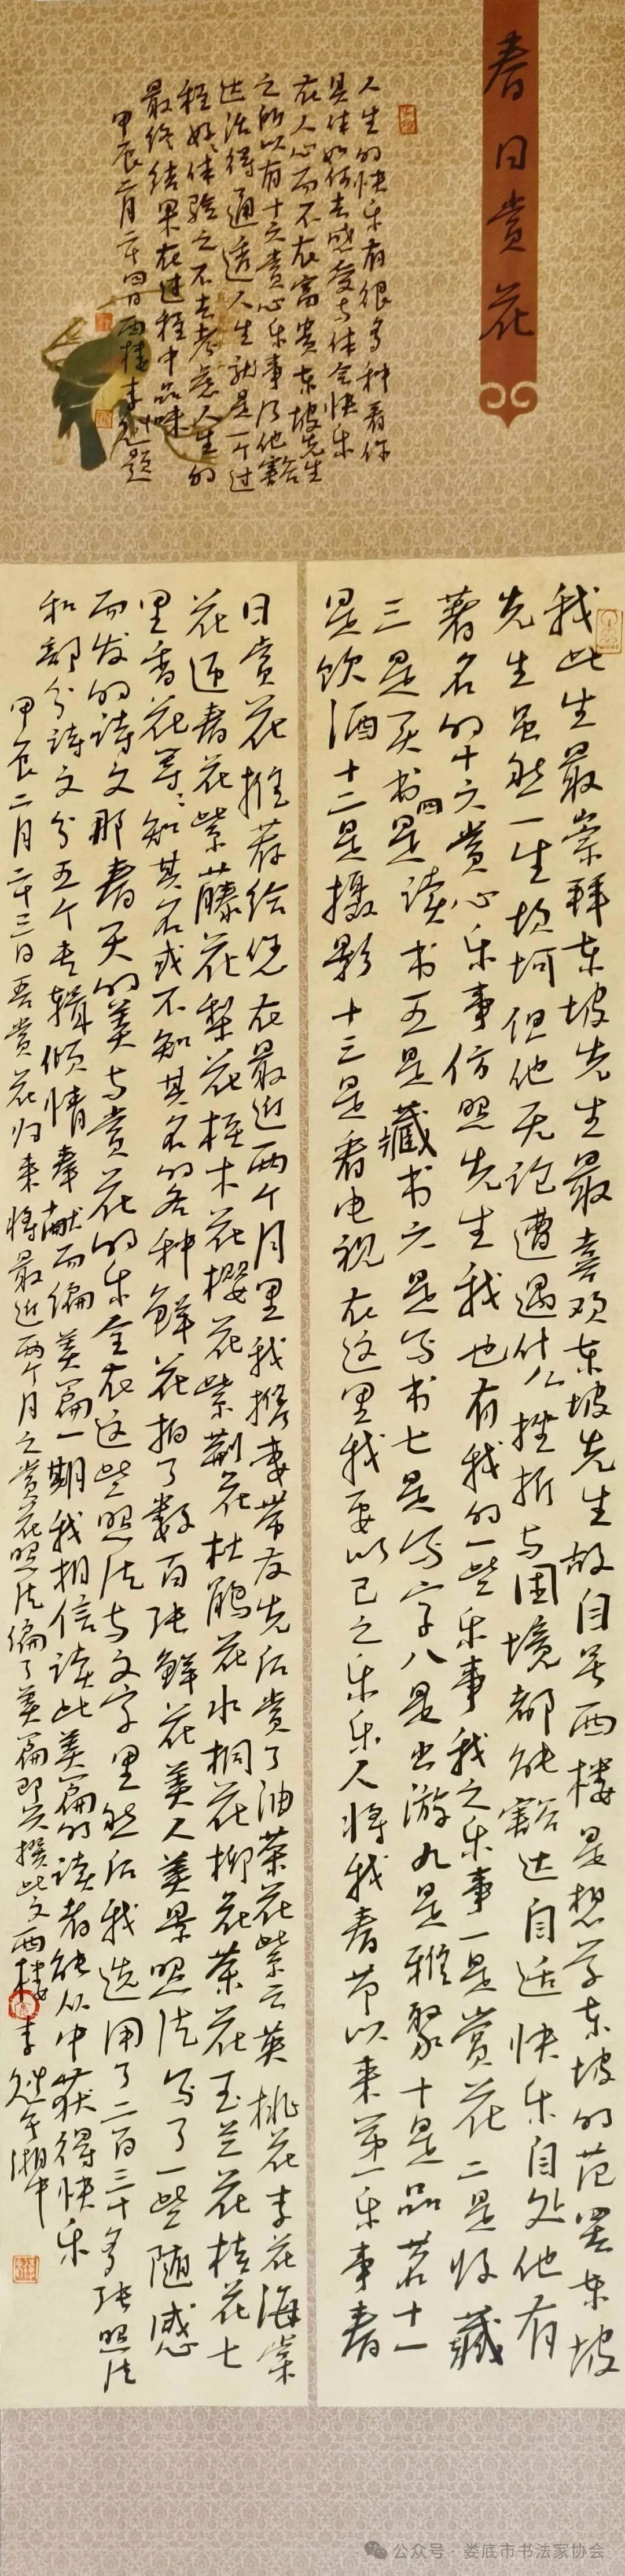 春日赏花
人生的快乐有很多种看你
具体如何去感受与体会快乐
在人心而不在富贵东坡先生
之所以有十六赏心乐事乃他豁
达活得通透人生就是一个过
程好好体验之不去考虑人生的
最终结果在过程中品味
甲辰二月二十四日西楼李 题
我此生最崇拜东坡先生最喜欢东坡先生故自号西楼是想学东坡的范罢东坡
先生虽然一生坎坷但他无论遭遇什么挫折与困境都能豁达自适快乐自处他有
著名的十六赏心乐事仿照先生我也有我的一些乐事我之乐事一是赏花二是收藏
三是买书四是读书五是藏书六是写书七是写字八是出游九是雅聚十是品茗十一
是饮酒十二是摄影十三是看电视在这里我要以己之乐乐人将我春节以来第一乐事春
日赏花推荐给您在最近两个月里我携妻带友先后赏了油菜花紫云英桃花李花海棠
花迎春花紫藤花梨花桎木花樱花紫荆花杜鹃花水桐花柳花茶花玉兰花桂花七
里香花等等知其名或不知其名的各种鲜花拍了数百张鲜花美人美景照片写了一些随感
而发的诗文那春天的美与赏花的乐全在这些照片与文字里然后我选用了二百三十多张照片
和部分诗文分五个专辑倾情奉献而编美篇一期我相信读此美篇的读者能从中获得快乐
甲辰二月二十三日吾赏花归来将最近两个月之赏花照片编了美篇即兴撰此文西楼李 于湘中
公众号·娄底市书法家协会